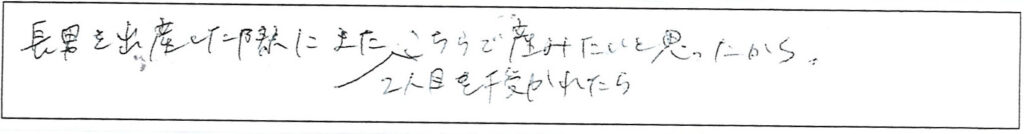 長男を出産した際にまたこちらで産みたいと思ったから。
2人目を授かれたら